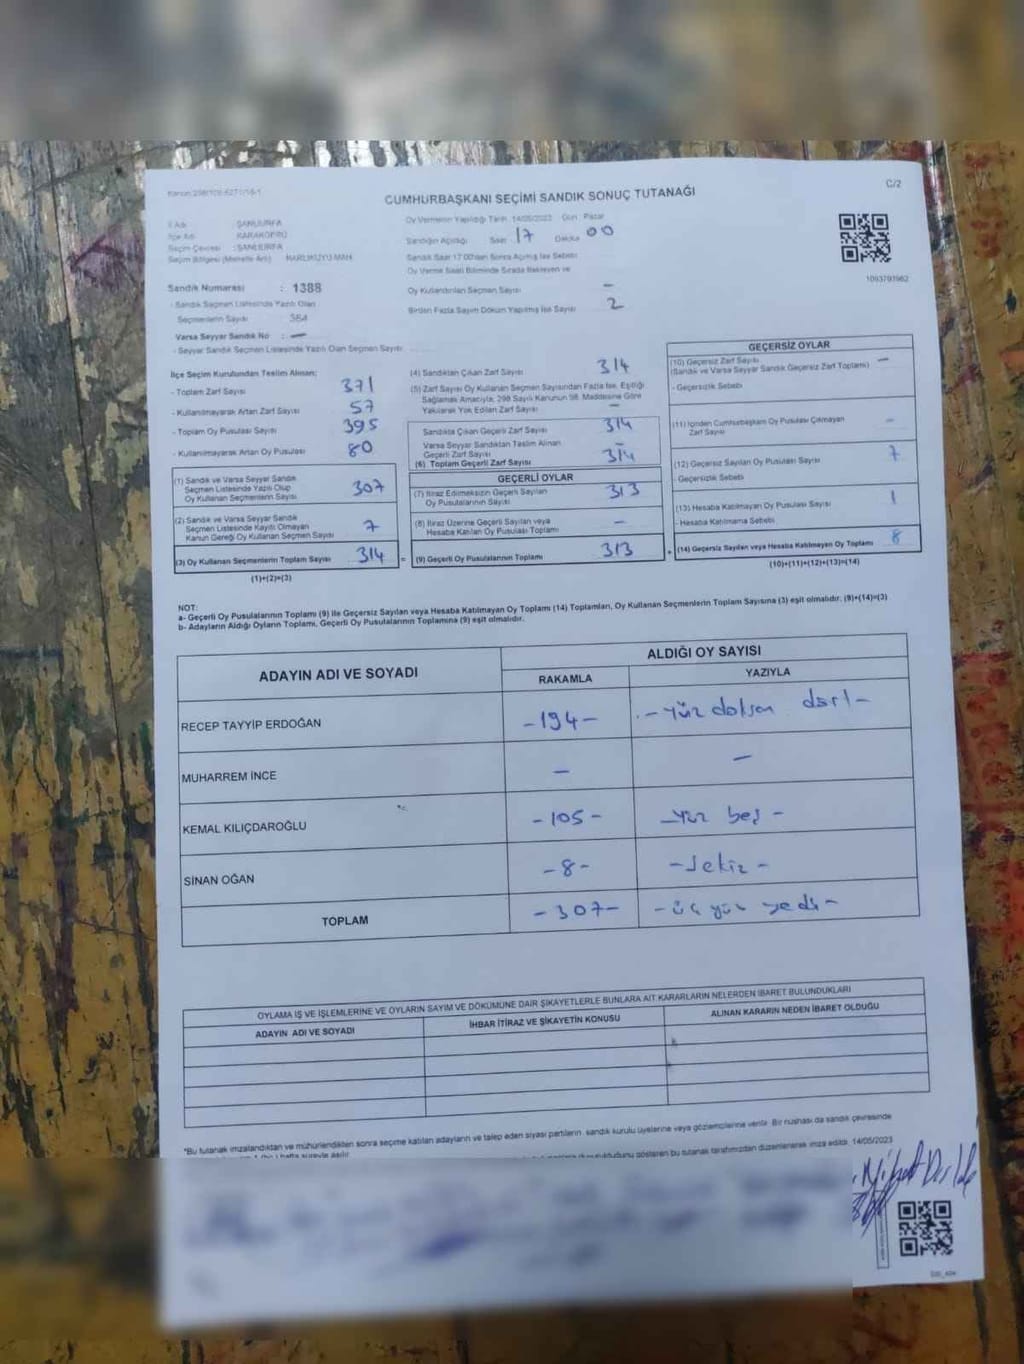 Kanun:298/109-6271/16-1
CUMHURBAŞKANI SEÇİMİ SANDIK SONUÇ TUTANAĞI
C/2
İl Adı : ŞANLIURFA
İlçe Adı : KARAKÖPRÜ
Seçim Çevresi : ŞANLIURFA
Seçim Bölgesi (Mahalle Adı) :
Oy Vermenin Yapıldığı Tarih 14/05/2023 Gün Pazar
Sandığın Açıldığı Saat 17 Dakika 00
Sandık Saat 17:00'dan Sonra Açılmış İse Sebebi
Oy Verme Saati Bitiminde Sırada Bekleyen ve
Oy Kullandırılan Seçmen Sayısı –
Birden Fazla Sayım Döküm Yapılmış İse Sayısı 2
1093793962
Sandık Numarası : 1388
- Sandık Seçmen Listesinde Yazılı Olan
Seçmenlerin Sayısı 384
Varsa Seyyar Sandık No : –
- Seyyar Sandık Seçmen Listesinde Yazılı Olan Seçmen Sayısı
İlçe Seçim Kurulundan Teslim Alınan:
- Toplam Zarf Sayısı 371
- Kullanılmayarak Artan Zarf Sayısı 57
- Toplam Oy Pusulası Sayısı 395
- Kullanılmayarak Artan Oy Pusulası 80
(1) Sandık ve Varsa Seyyar Sandık
Seçmen Listesinde Yazılı Olup
Oy Kullanan Seçmenlerin Sayısı 307
(2) Sandık ve Varsa Seyyar Sandık
Seçmen Listesinde Kayıtlı Olmayan
Kanun Gereği Oy Kullanan Seçmen Sayısı 7
(3) Oy Kullanan Seçmenlerin Toplam Sayısı 314 =
(1)+(2)=(3)
(4) Sandıktan Çıkan Zarf Sayısı 314
(5) Zarf Sayısı Oy Kullanan Seçmen Sayısından Fazla İse, Eşitliği
Sağlamak Amacıyla, 298 Sayılı Kanunun 98. Maddesine Göre
Yakılarak Yok Edilen Zarf Sayısı –
Sandıkta Çıkan Geçerli Zarf Sayısı 314
Varsa Seyyar Sandıktan Teslim Alınan
Geçerli Zarf Sayısı –
(6) Toplam Geçerli Zarf Sayısı 314
GEÇERLİ OYLAR
(7) İtiraz Edilmeksizin Geçerli Sayılan
Oy Pusulalarının Sayısı 313
(8) İtiraz Üzerine Geçerli Sayılan veya
Hesaba Katılan Oy Pusulası Toplamı –
(9) Geçerli Oy Pusulalarının Toplamı 313 +
GEÇERSİZ OYLAR
(10) Geçersiz Zarf Sayısı –
(Sandık ve Varsa Seyyar Sandık Geçersiz Zarf Toplamı)
- Geçersizlik Sebebi
(11) İçinden Cumhurbaşkanı Oy Pusulası Çıkmayan
Zarf Sayısı –
(12) Geçersiz Sayılan Oy Pusulası Sayısı 7
- Geçersizlik Sebebi
(13) Hesaba Katılmayan Oy Pusulası Sayısı 1
- Hesaba Katılmama Sebebi
(14) Geçersiz Sayılan veya Hesaba Katılmayan Oy Toplamı 8
(10)+(11)+(12)+(13)=(14)
NOT:
a- Geçerli Oy Pusulalarının Toplamı (9) ile Geçersiz Sayılan veya Hesaba Katılmayan Oy Toplamı (14) Toplamları, Oy Kullanan Seçmenlerin Toplam Sayısına (3) eşit olmalıdır. (9)+(14)=(3)
b- Adayların Aldığı Oyların Toplamı, Geçerli Oy Pusulalarının Toplamına (9) eşit olmalıdır.
ADAYIN ADI VE SOYADI
ALDIĞI OY SAYISI
RAKAMLA YAZIYLA
RECEP TAYYİP ERDOĞAN -194- -yüz doksan dört-
MUHARREM İNCE – –
KEMAL KILIÇDAROĞLU -105- -yüz beş-
SİNAN OĞAN -8- -sekiz-
TOPLAM -307- -üç yüz yedi-
OYLAMA İŞ VE İŞLEMLERİNE VE OYLARIN SAYIM VE DÖKÜMÜNE DAİR ŞİKAYETLERLE BUNLARA AİT KARARLARIN NELERDEN İBARET BULUNDUKLARI
ADAYIN ADI VE SOYADI İHBAR İTİRAZ VE ŞİKAYETİN KONUSU ALINAN KARARIN NEDEN İBARET OLDUĞU
*Bu tutanak imzalandıktan ve mühürlendikten sonra seçime katılan adayların ve talep eden siyasi partilerin, sandık kurulu üyelerine veya gözlemcilerine verilir. Bir nüshası da sandık çevresinde
bu tutanak tarafımızdan düzenlenerek imza edildi. 14/05/2023